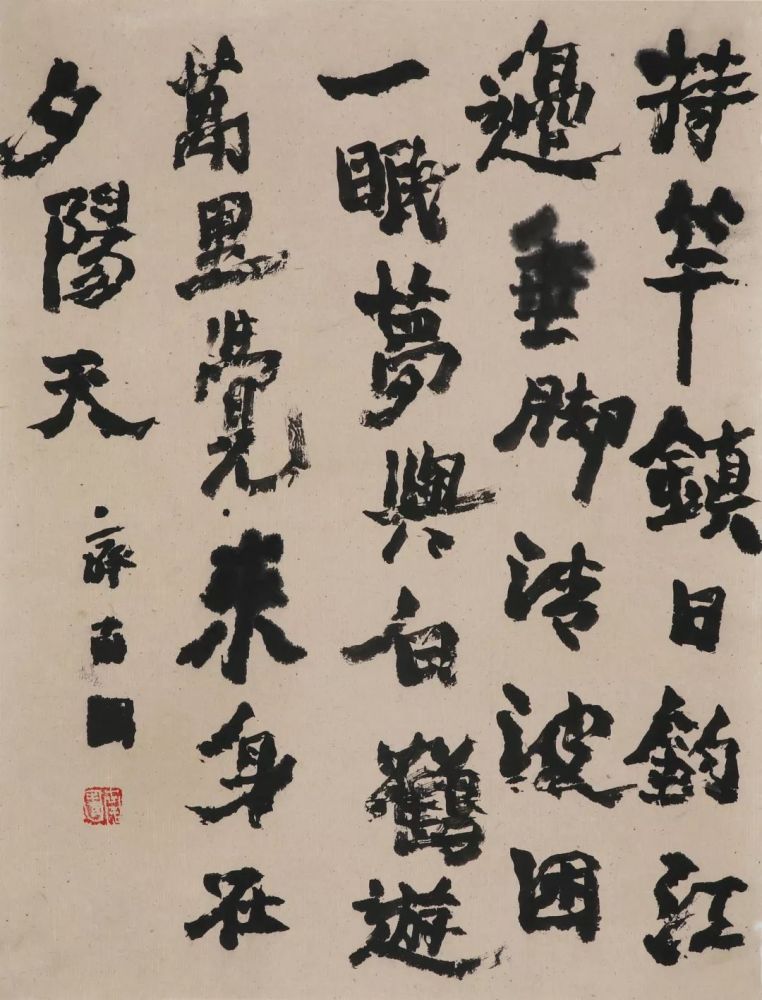 持竿鎮日釣江
邊垂脚清波困
一眠夢與白鶴遊
萬里覺來身在
夕陽天